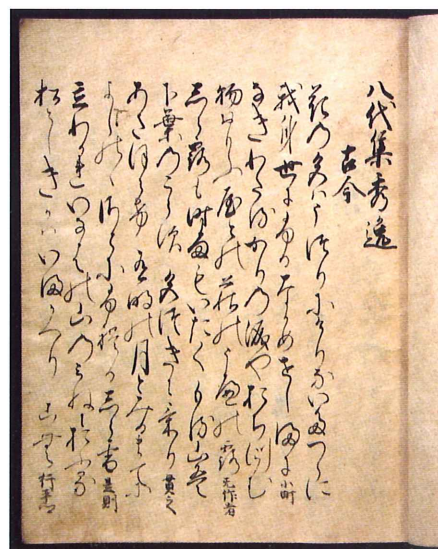 八代集秀逸
古今
花乃色はうつりにけりないたつらに
我身世にふるなかめせしまに 小町
なきわたるかりの涙やおちつらむ
物おもふ屋との萩のうへの露 無作者
しら露も時雨もいたくもる山は
下葉のこらす色つきにけり 貫之
あさほらけ有明の月とみるまてに
よしのゝさとにふれるしら雪 是則
立わかれいなはの山のみねにおふる
松としきかはいまかへりこむ 行平